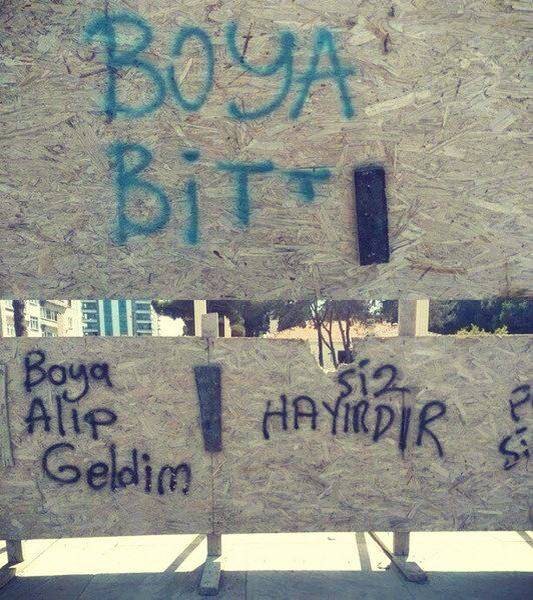 BOYA
BiTT
Boya
Alıp
Geldim
Siz
HAYIRDIR
Si